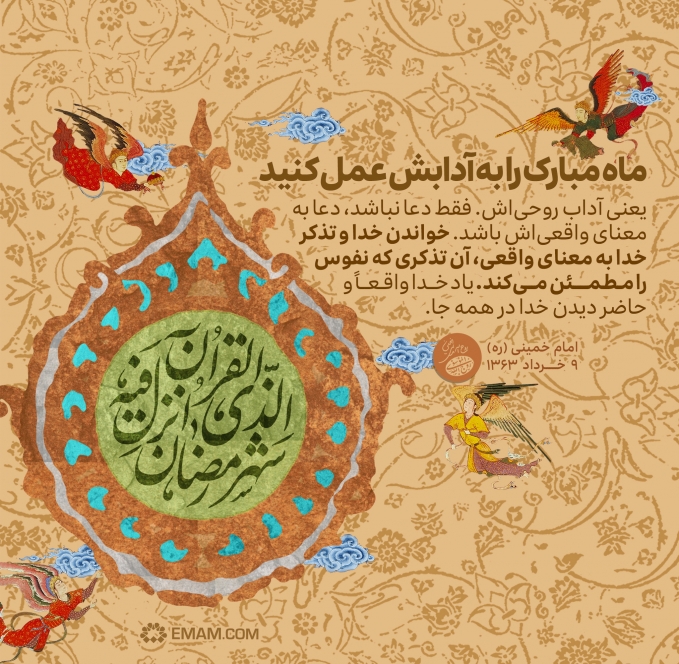 ماه مبارک را به آدابش عمل کنید
یعنی آداب روحی‌اش. فقط دعا نباشد، دعا به
معنای واقعی‌اش باشد. خواندن خدا و تذکر
خدا به معنای واقعی، آن تذکری که نفوس
را مطمئن می‌کند. یاد خدا واقعاً و
حاضر دیدن خدا در همه جا.
امام خمینی (ره)
۹ خرداد ۱۳۶۳
شهر رمضان الذی انزل فیه القرآن
EMAM.COM